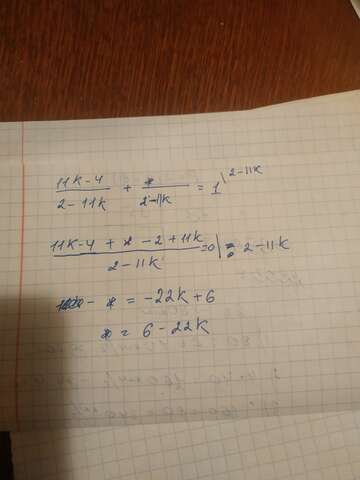 (11k-4)/(2-11k) + */(2-11k) = 1 \ 2-11k
(11k-4 + * - 2 + 11k)/(2-11k) = 0 | 2-11k
- * = -22k + 6
* = 6 - 22k